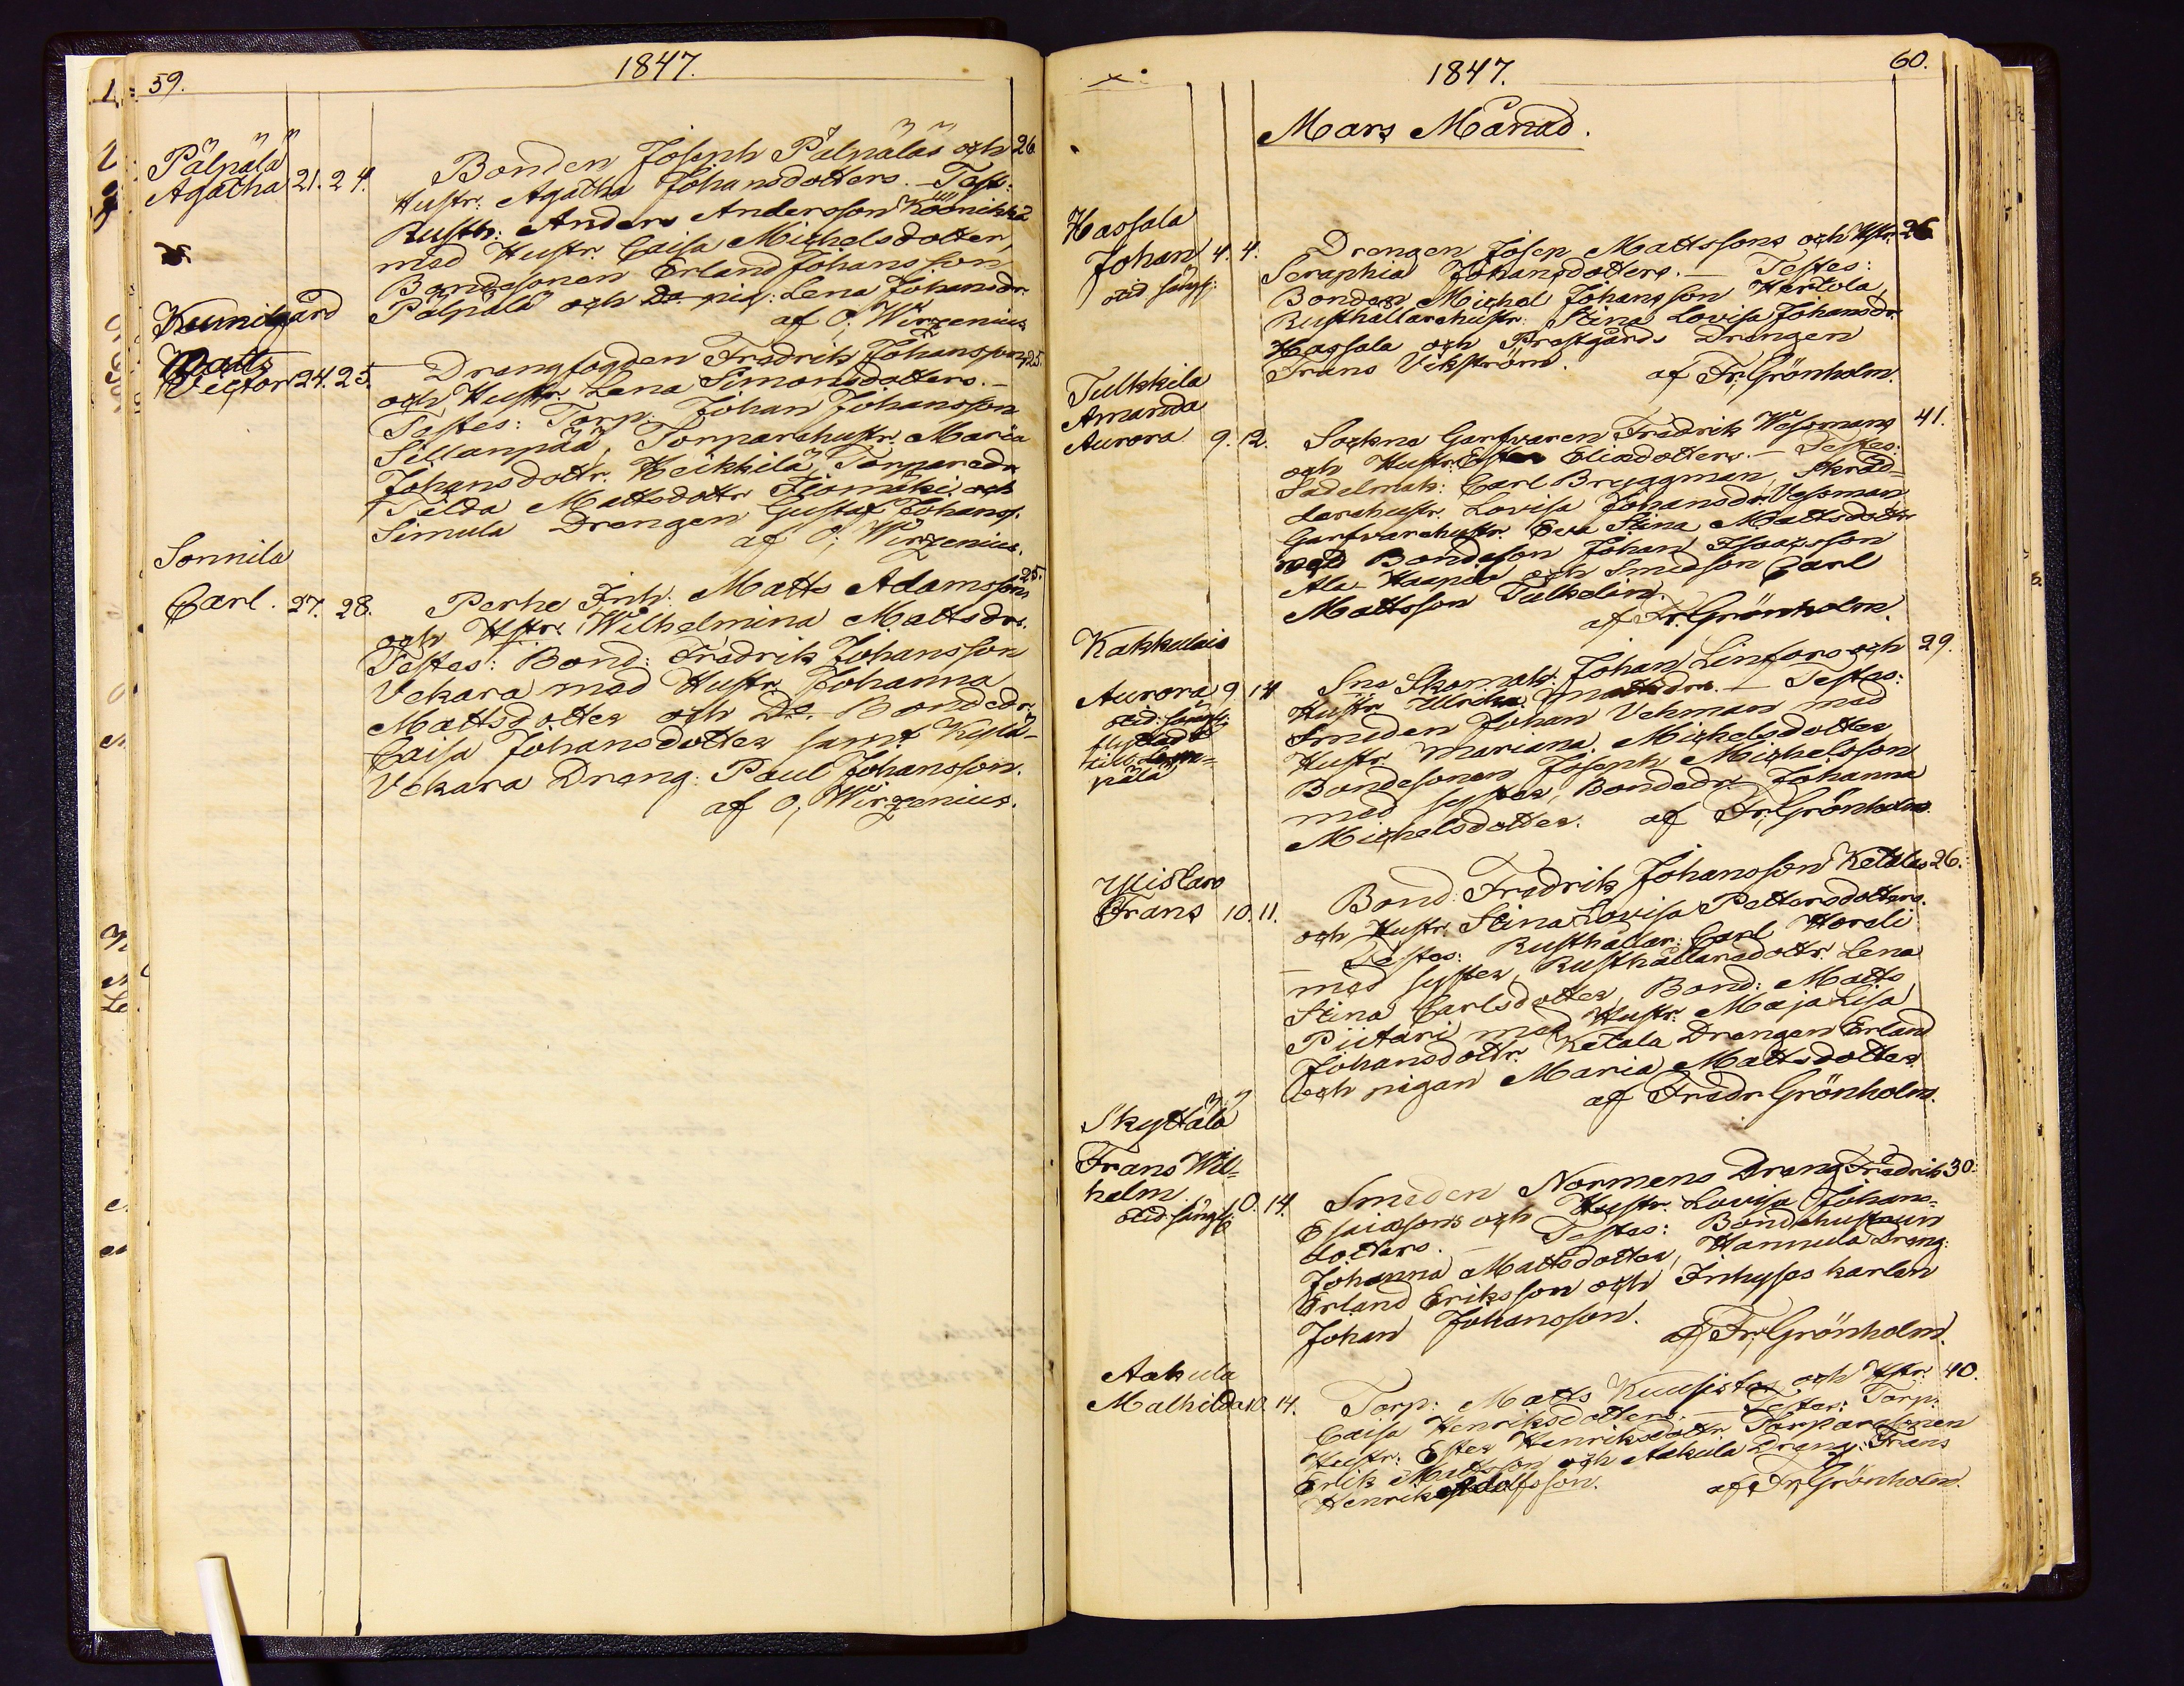 59.
1847.
Pälpälä
Agatha 21. 24.
Bonden Joseph Pälpäläs och 26.
Hustr: Agatha Johansdotters. Test:
Rusth: Anders Andersson Köönikkä
med Hustr. Caisa Michelsdotter,
Bondesonen Erland Johansson
Pälpälä och Do pig: Lena Johansdr.
af O. Wirzenius
Kumilgård
Victor 24. 25.
Drangfogden Fredrik Johanssons 25.
och Hustr. Lena Simonsdotters. -
Testes: Torp: Johan Johansson
Sillanpää, Torparehustr. Maria
Johansdottr. Heikkilä, Torparedr
Tilda Mattsdottr Isomäki och
Simula Drengen Gustaf Johanss.
af O. Wirzenius.
Sonnila
Carl. 27. 28.
Perhe Inh: Matts Adamssons 25.
och Hstrs Wilhelmina Mattsdrs.
Testes: Bond: Fredrik Johansson
Vekara med Hustr. Johanna
Mattsdotter och Do. Bondedr.
Caisa Johansdotter samt Kylä-
Vekara Dreng: Paul Johansson.
af O, Wirzenius.
60.
1847.
Mars Månad.
Hassala
Johan 4. 4.
Drengen Josep Mattssons och Hstr: 26
Seraphia Johansdotters. - Testes:
Bonden Michel Johansson Hertola,
Rusthållarehustr: Stina Lovisa Johansdr.
Hassala och Prestgårds Drengen
Frans Vikström.
af Fr. Grönholm.
Tulkkila
Amanda
Aurora 9. 12.
Sockne Garfvaren Fredrik Wessmans 41.
och Hustr: Ester Eliædotters. - Testes:
Sadelmak: Carl Bryggman, Skräd-
darehustr. Lovisa Johansdr Vessman
Garfvarehustr. Eva Stina Mattsdottr
med Bondeson Johan Isaacsson
Ala- och Smedson Carl
Mattsson Tulkelin.
af Fr. Grönholm.
Kakkulais
Aurora 9. 14
Sne Skomak: Johan Linfors och 29.
Hustr. Ulrika Mattsdrs. - Testes:
Smeden Johan Vehman med
Hustr Mariana Michelsdotter
Bondesonen Joseph Michelsson
med syster, Bondedr. Johanna
Michelsdotter. af Fr. Grönholm.
flyttad
till
Frans 10. 11.
Bond: Fredrik Johansson Ketalas 26.
och Hustr. Stina Lovisa Pettersdotters.
- Testes: Rusthållar: Carl Horeli
med syster, Rusthållaredottr. Lena
Stina Carlsdotter, Bond: Matts
Piietari med Hustr: Maja Lisa
Johansdottr. Ketala Drengen Erland
och pigan Maria Mattsdotter.
af Fredr Grönholm.
Skyttälä
Frans Wil-
helm 10. 14.
Smeden Normens Dreng Fredrik 30.
Esaiæsons och Hustr. Lovisa Johans-
dotters. - Testes: Bondehustrun
Johanna Mattsdotter, Hannula Dreng:
Erland Eriksson och Inhyses karlen
Johan Johansson.
af Fr. Grönholm.
Aakula
Mathilda 10. 14.
Torp: Matts Kuusistos och Hstr: 40.
Caisa Henriksdotters. - Testes: Torp:
Hustr: Ester Henriksdottr Torparesonen
Erik Mattsson och Aakula Dreng: Frans
Henrik Adolfsson.
af Fr. Grönholm.